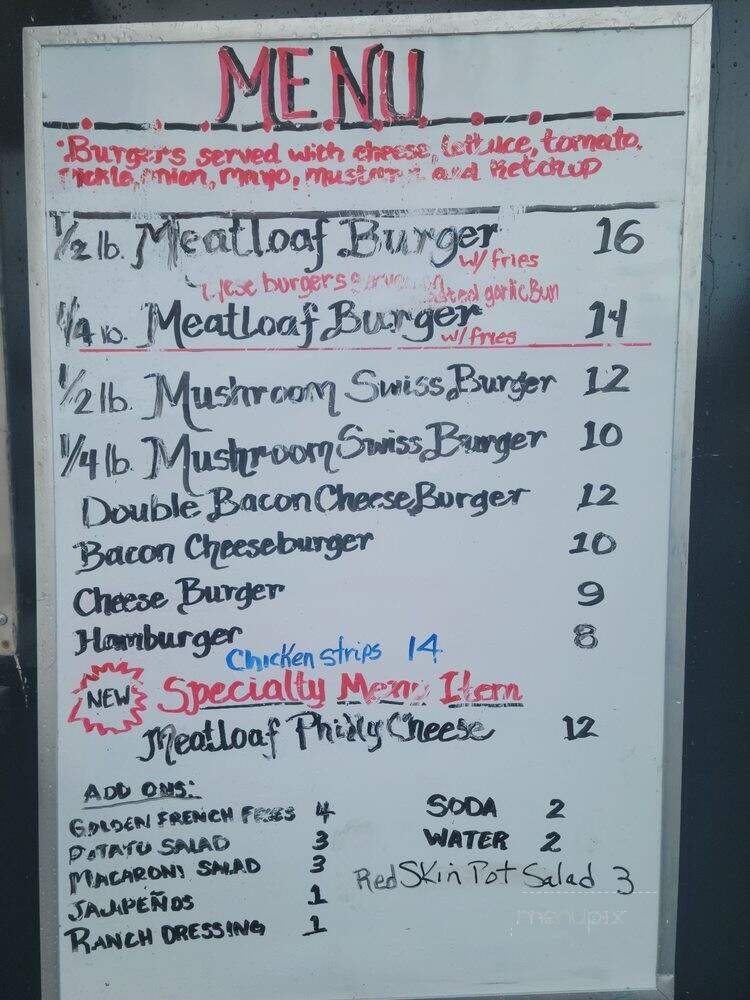 MENU
*Burgers served with cheese, lettuce, tomato,
Pickle, onion, mayo, mustard and Ketchup
1/2 lb. Meatloaf Burger 16
w/ fries
These burgers served garlic Bun
1/4 lb. Meatloaf Burger 14
w/ fries
1/2 lb. Mushroom Swiss Burger 12
1/4 lb. Mushroom Swiss Burger 10
Double Bacon Cheese Burger 12
Bacon Cheeseburger 10
Cheese Burger 9
Hamburger 8
Chicken strips 14
NEW Specialty Menu Item
Meatloaf Philly Cheese 12
ADD ONS:
GOLDEN FRENCH FRIES 4
POTATO SALAD 3
MACARONI SALAD 3
JALAPEÑOS 1
RANCH DRESSING 1
SODA 2
WATER 2
Red Skin Pot Salad 3
menupix